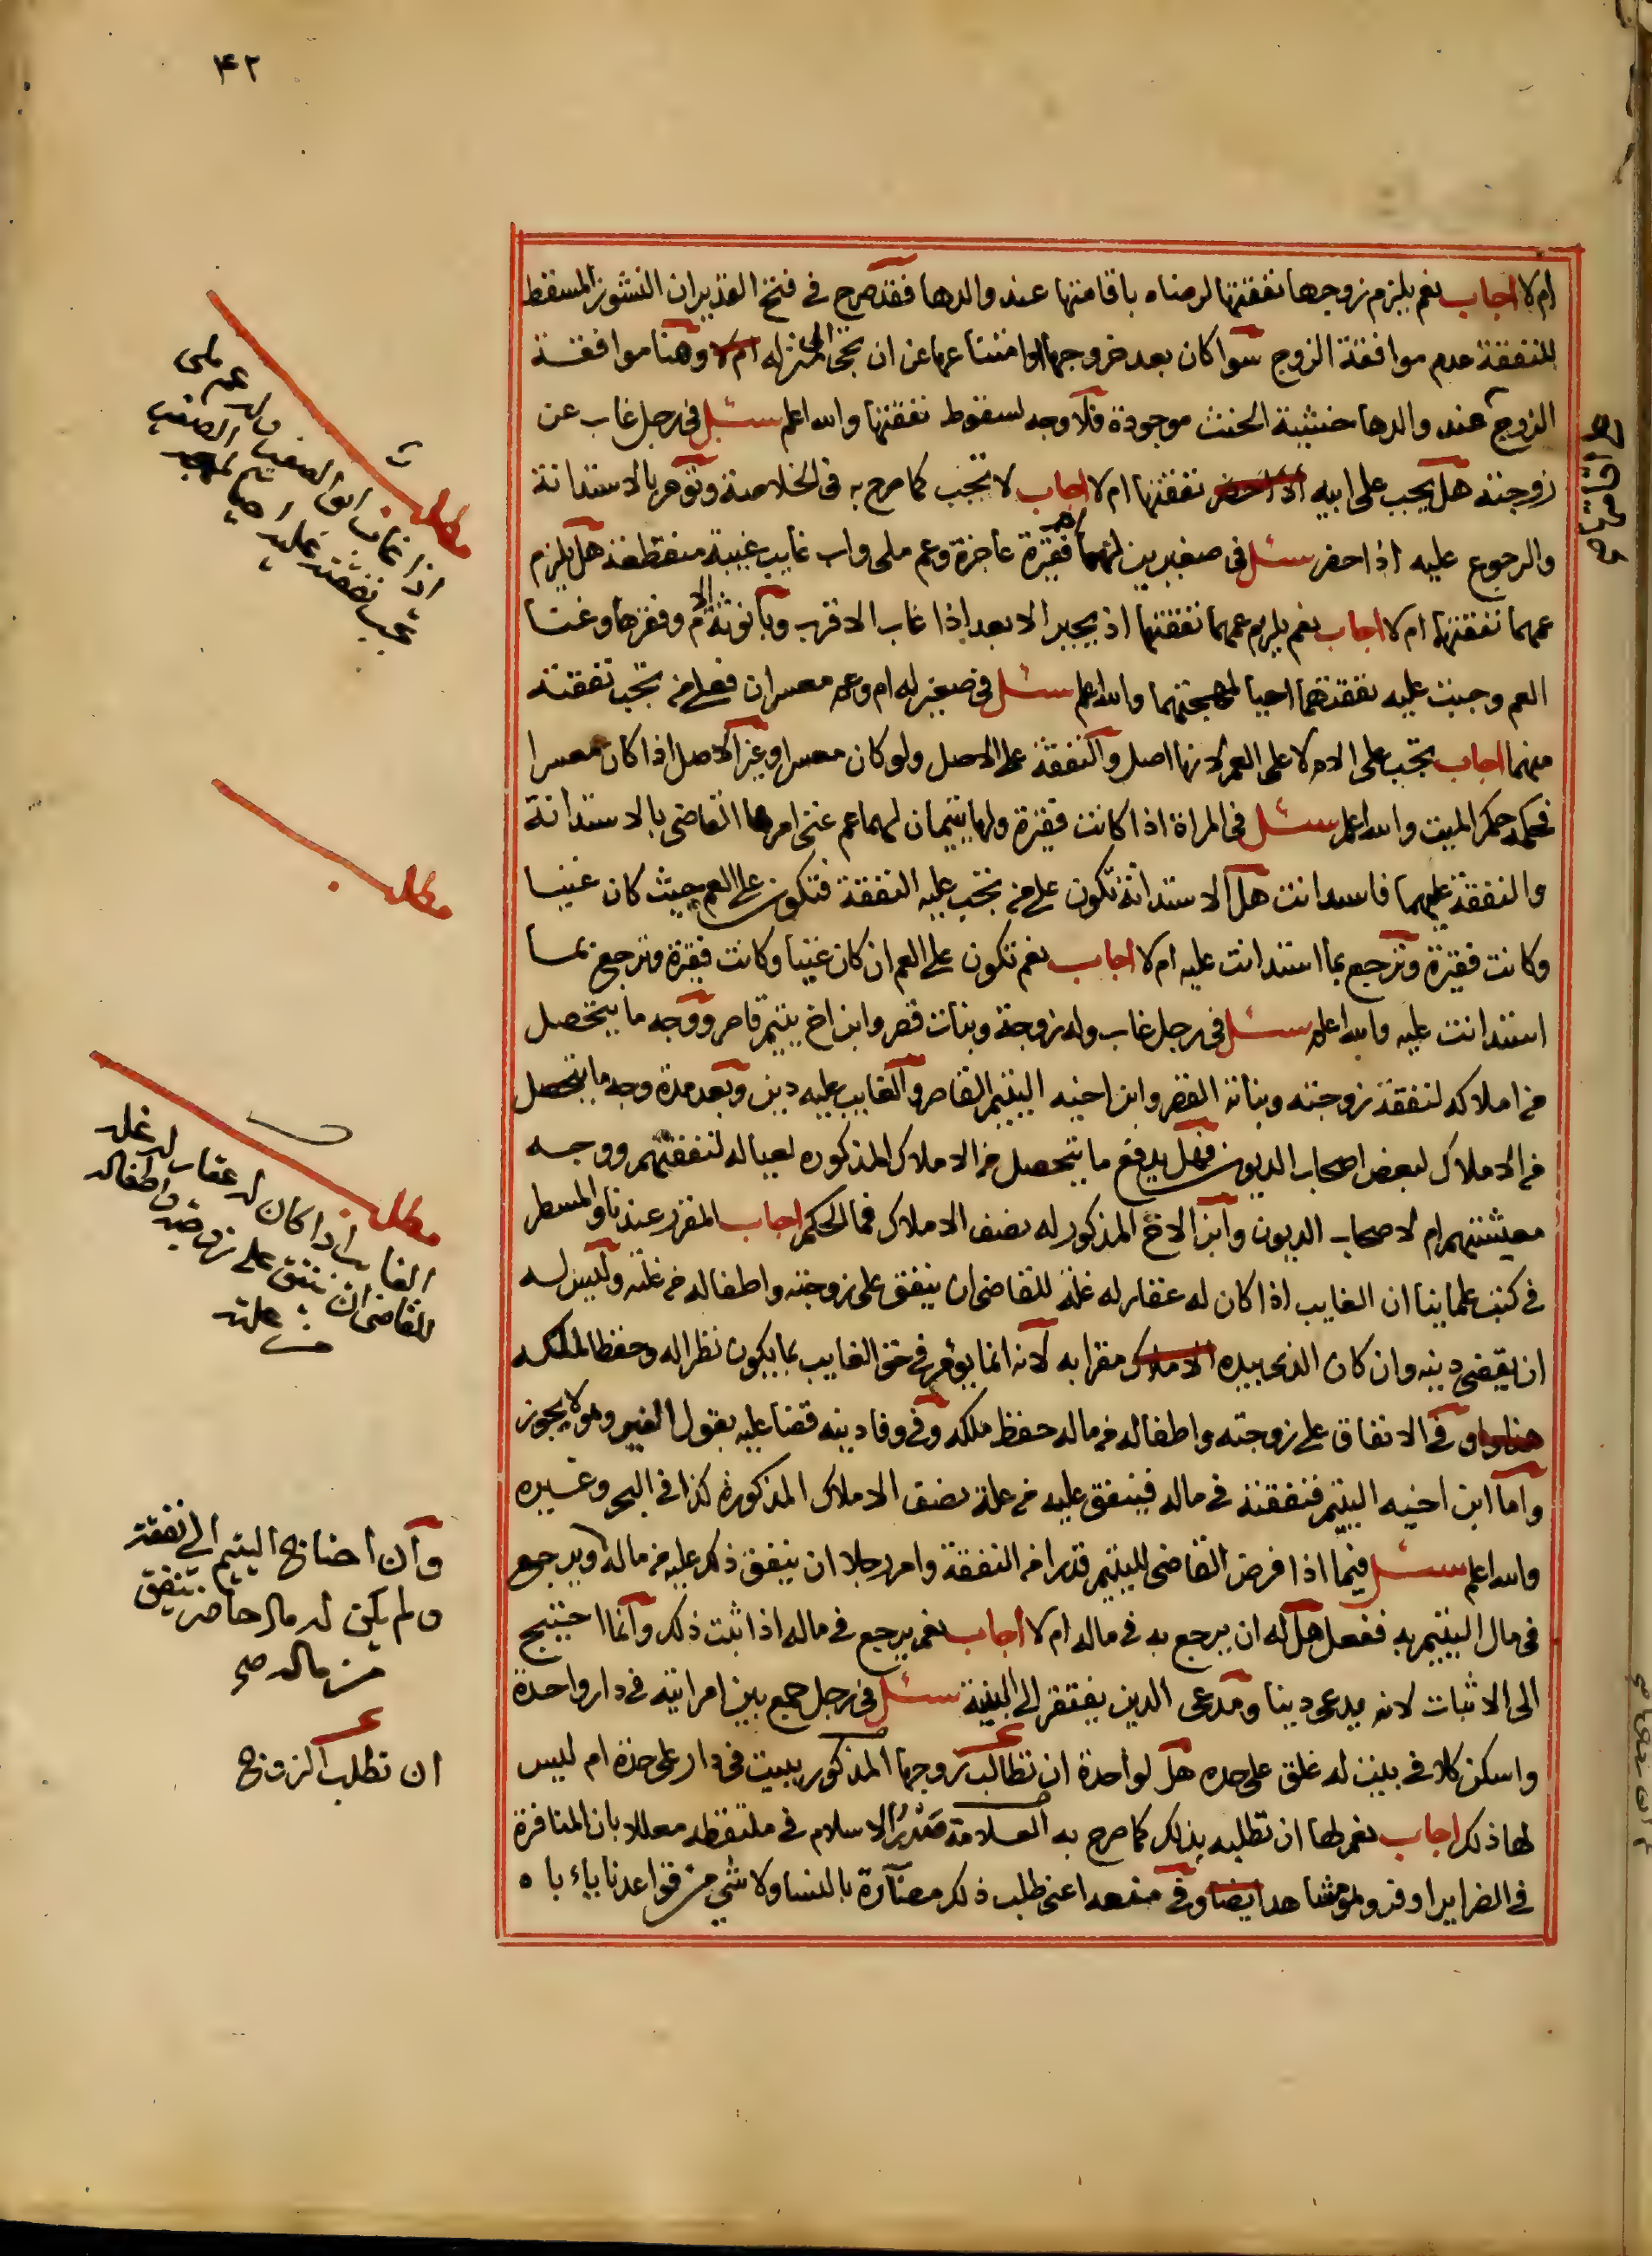 ٤٢
ام لا اجاب نعم يلزم زوجها نفقتها لرضاه باقامتها عند والدها فقد صرح في فتح القدير ان النشوز المسقط
للنفقة عدم موافقة الزوج سواكان بعد خروجها او امتنا عها عن ان تجئ الى منزله ام لا وهنا موافقة
الزوج عند والدها خشية الحنث موجودة فلا وجه لسقوط نفقتها والله اعلم سئل في رجل غاب عن
زوجته هل يجب على ابيه اذا حضر نفقتها ام لا اجاب لا تجب كما صرح به في الخلاصة وتؤمر بالاستدانة
والرجوع عليه اذا حضر سئل في صغيرين لهما ام فقيرة عاجزة وعم ملى واب غايب غيبة منقطعة هل يلزم
عمهما نفقتهما ام لا اجاب نعم يلزم عمهما نفقتهما اذ يجبر الابعد اذا غاب الاقرب وبانوثة الام وفقرها وغنا
العم وجبت عليه نفقتهما احيا لمهجتهما والله اعلم سئل في صغير له ام وعم معسران فعلى من تجب نفقته
منهما اجاب تجب على الام لا على العم لانها اصل والنفقة على الاصل ولو كان معسرا وغير الاصل اذا كان معسرا
فحكمه حكم الميت والله اعلم سئل في المراة اذا كانت فقيرة ولها يتيمان لهما عم غنى امرها القاضى بالاستدانة
والنفقة عليهما فاستدانت هل الاستدانة تكون على من تجب عليه النفقة فتكون على العم حيث كان غنيا
وكانت فقيرة وترجع بما استدانت عليه ام لا اجاب نعم تكون على العم ان كان غنيا وكانت فقيرة وترجع بما
استدانت عليه والله اعلم سئل في رجل غاب وله زوجة وبنات قصر وابن اخ يتيم قاصر ووجه ما يتحصل
من املاكه لنفقة زوجته وبناته القصر وابن اخيه اليتيم القاصر والغايب عليه دين وبعد مدة وجه ما يتحصل
من الاملاك لبعض اصحاب الديون فهل يدفع ما يتحصل من الاملاك المذكوره لعياله لنفقتهم ووجه
معيشتهم ام لاصحاب الديون وابن الاخ المذكور له نصف الاملاك فما الحكم اجاب المقرر عندنا والمسطر
في كتب علماينا ان الغايب اذا كان له عقار له غلة للقاضى ان ينفق على زوجته واطفاله من غلته وليس له
ان يقضى دينه وان كان الذى بيده الاملاك مقرا به لانه انما يؤمر في حق الغايب بما يكون نظرا له وحفظا لملكه
وفي الانفاق على زوجته واطفاله من ماله حفظ ملكه وفي وفا دينه قضا عليه بقول الغير وهو لا يجوز
واما ابن اخيه اليتيم فنفقته في ماله فينفق عليه من غلة نصف الاملاك المذكورة كذا في البحر وغيره
والله اعلم سئل فيما اذا فرض القاضى لليتيم قدرا من النفقة وامر رجلا ان ينفق ذلك عليه من ماله ويرجع
في مال اليتيم به ففعل هل له ان يرجع به في ماله ام لا اجاب نعم يرجع في ماله اذا ثبت ذلك وانما احتيج
الى الاثبات لانه يدعى دينا ومدعى الدين يفتقر الى البينة سئل في رجل جمع بين امراتيه في دار واحدة
واسكن كلا في بيت له غلق على حده هل لواحدة ان تطالب زوجها المذكور ببيت في دار على حدة ام ليس
لها ذلك اجاب نعم لها ان تطلبه بذلك كما صرح به العلامة صدر الاسلام في ملتقطه معللا بان المنافرة
في الضراير اوفر وهو مشاهد ايضا وفي منعها عن طلب ذلك مضارة بالنسا ولا شي من قواعدنا ياباه
مطلب
اذا غاب ابو الصغير وله عم ملى
تجب نفقته عليه احيا لمهجة الصغير
مطلب
مطلب
الغايب اذا كان له عقار له غلة
للقاضى ان ينفق على زوجته واطفاله
من غلته
وان احتاج اليتيم الى نفقة
ولم يكن له مال حاضر ينفق
من ماله صح
ان تطلب الزوج